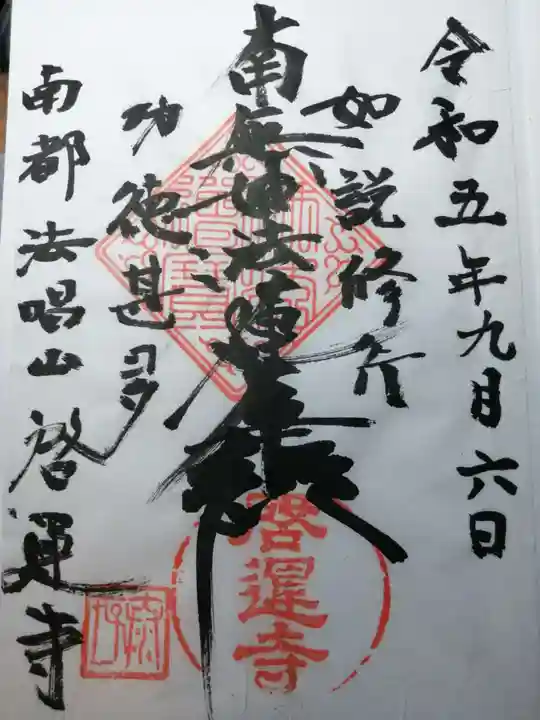 令和五年九月六日
如説修行
南無妙法蓮華経
功徳甚多
南都法唱山啓運寺
啓運寺